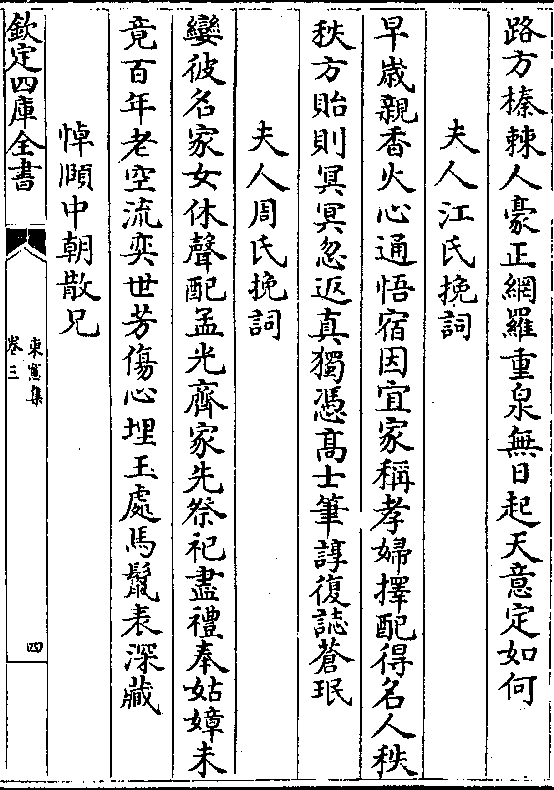 路方榛棘人豪正網羅重泉無日起天意定如何
夫人江氏挽詞
早歲親香火心通悟宿因宜家稱孝婦擇配得名人秩
秩方貽則冥冥忽返真獨憑髙士筆諄復誌蒼珉
夫人周氏挽詞
孌彼名家女休聲配孟光齊家先祭祀盡禮奉姑嫜未
竟百年老空流奕世芳傷心埋玉處馬鬛表深藏
悼順中朝散兄
欽定四庫全書
東窻集
卷三
四